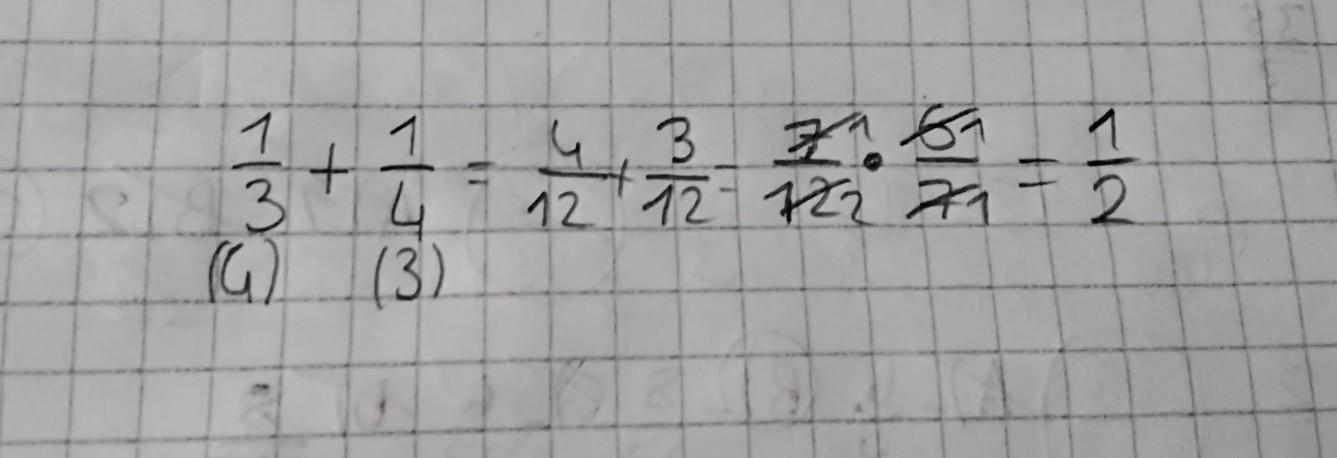 1/3 + 1/4 = 4/12 + 3/12 = 7̶ 1/1̶2̶ 2 • 6̶ 1/7̶ 1 = 1/2
(4) (3)